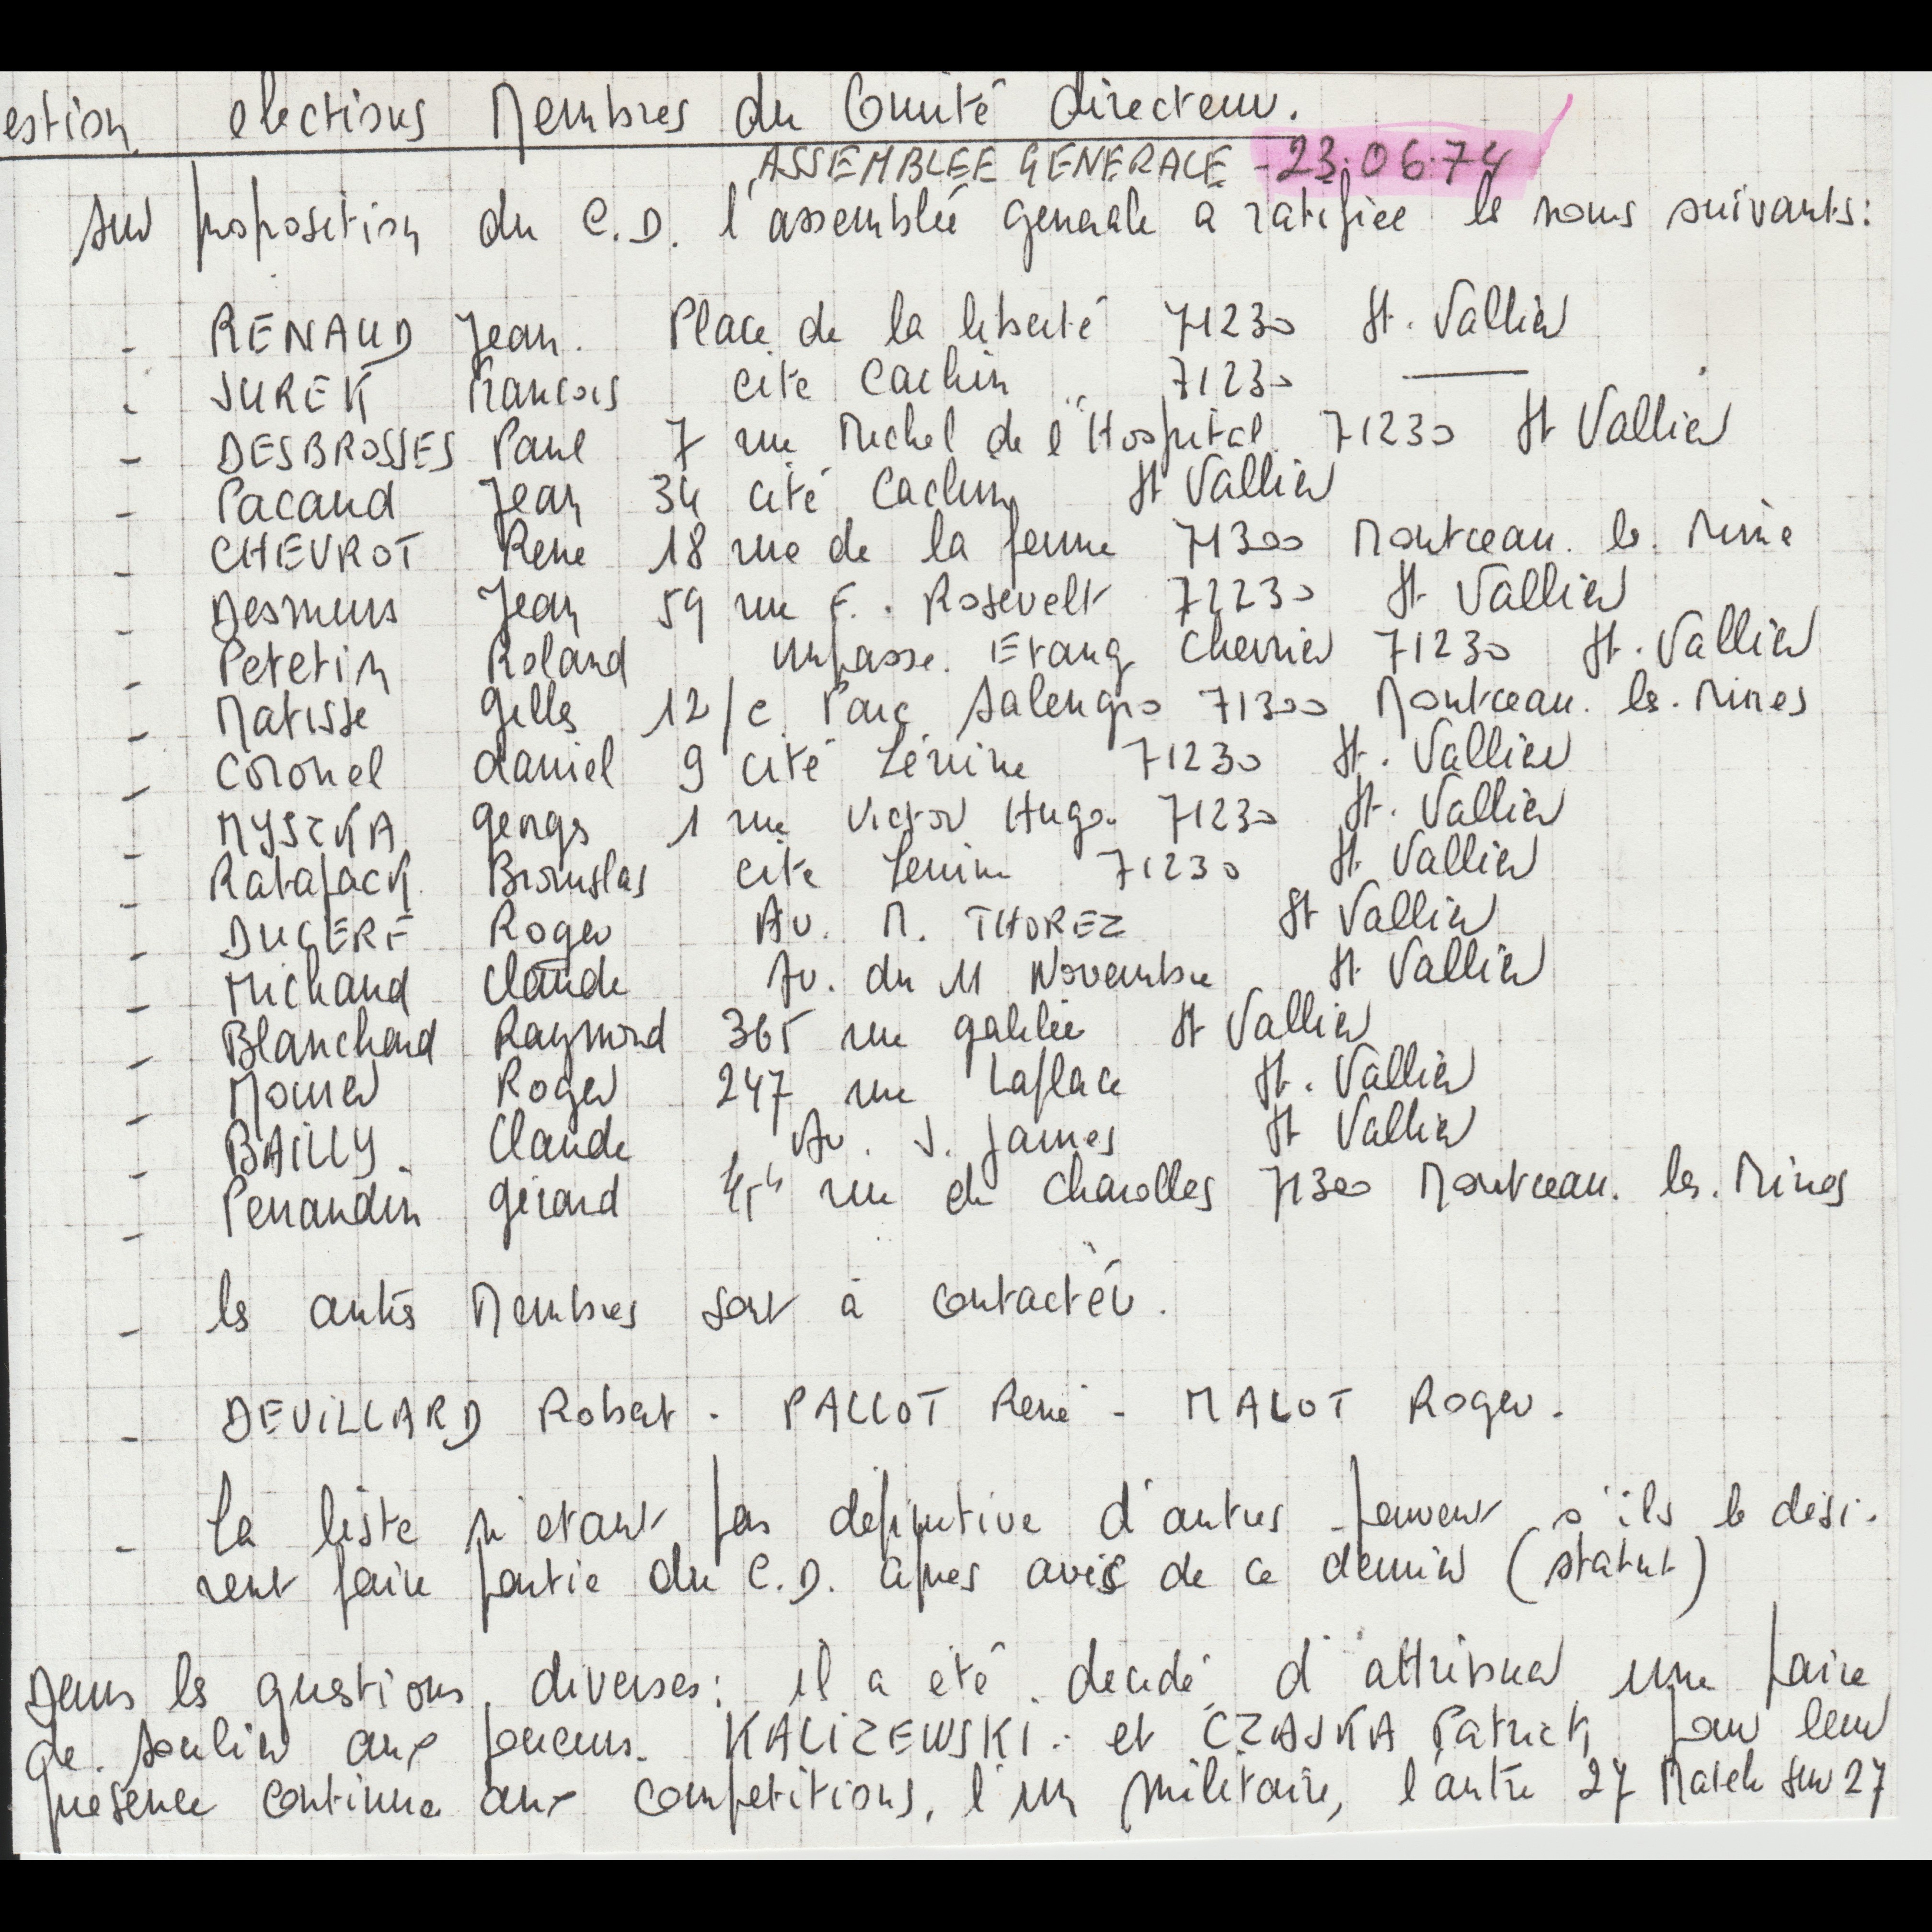 estion elections Membres du Comité directeur.
ASSEMBLEE GENERALE - 23.06.74
sur proposition du C.D. l'assemblée generale a ratifiée les noms suivants:
- RENAUD Jean. Place de la liberté 71230 St. Vallier
- JUREK François cité Cachin 71230 ———
- DESBROSSES Paul 7 rue Michel de l'Hospital 71230 St Vallier
- Pacaud Jean 34 cité Cachin St Vallier
- CHEVROT Rene 18 rue de la ferme 71300 Montceau. les. Mine
- Desmurs Jean 59 rue F. Rosevelt 72230 St Vallier
- Petetin Roland impasse. Etang Chevrier 71230 St. Vallier
- Matisse Gilles 12/c Parc Salengro 71300 Montceau. les. Mines
- Coronel daniel 9 cité Lénine 71230 St. Vallier
- MYSZKA Georges 1 rue Victor Hugo 71230 St. Vallier
- Ratajack Bronislas cite Lenine 71230 St. Vallier
- DUCERF Roger Av. M. THOREZ St Vallier
- Michaud Claude Av. du 11 Novembre St Vallier
- Blanchard Raymond 365 rue galilée St Vallier
- Monier Roger 247 rue Laplace St. Vallier
- BAILLY. Claude Av. J. Jaures St Vallier
- Perraudin Gérard rue de Charolles 71300 Montceau. les. Mines
- les autres Membres sont à contacter.
- DEVILLARD Robert - PALLOT René - MALOT Roger.
- La liste n'etant pas definitive d'autres peuvent s'ils le desi-
rent faire partie du C.D. apres avis de ce dernier (statut)
Dans les questions diverses: il a été decidé d'attribuer une paire
de soulier aux joueurs. KALIZEWSKI. et CZAJKA Patrick pour leur
présence continue aux competitions, l'un militaire, l'autre 27 Match sur 27